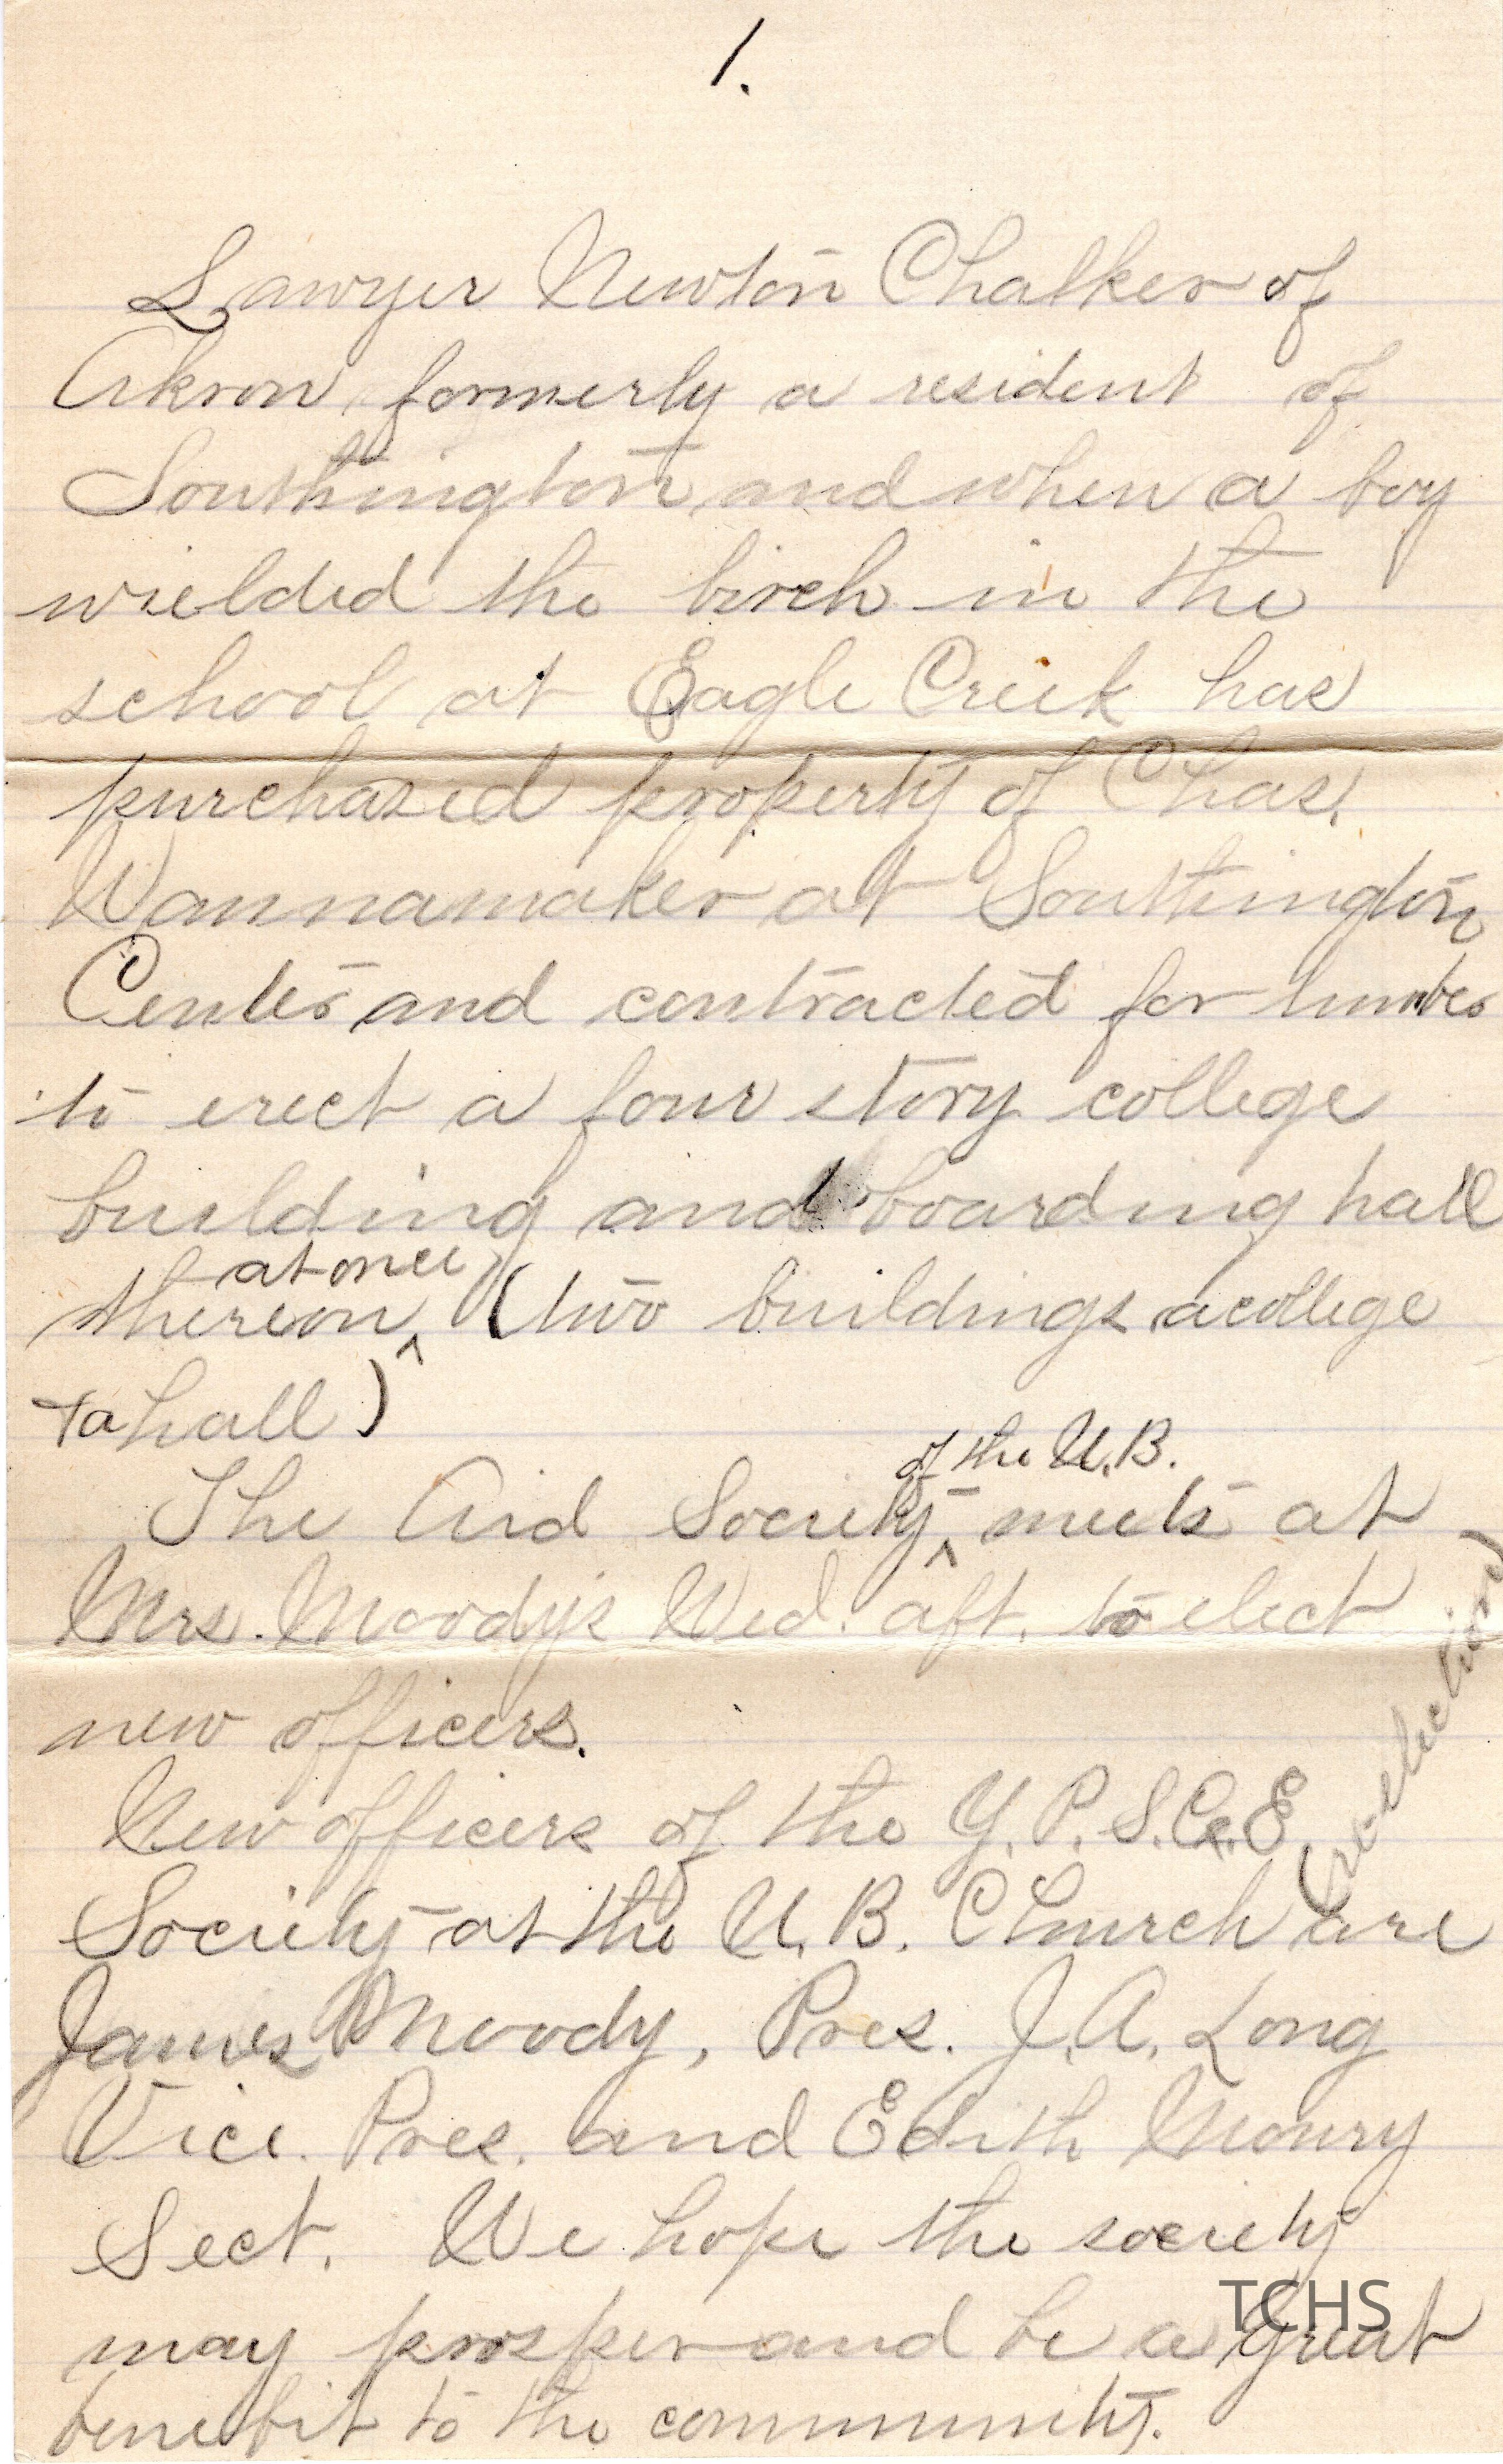 1.
Lawyer Newton Chalker of
Akron formerly a resident of
Southington and when a boy
wielded the birch in the
school at Eagle Creek has
purchased property of Chas.
Wannamaker at Southington
Center and contracted for lumber
to erect a four story college
building and boarding hall
at once
thereon ^ (two buildings a college
+ a hall)
of the U.B.
The Aid Society ^ meets at
Mrs. Moody's Wed. aft. to elect
new officers.
New officers of the Y.P.S.C.E
Society at the U.B. Church are
James Moody, Pres. J.A. Long
Vice. Pres. and Edith Mowry
Sect. We hope the society
may prosper and be a great
benefit to the community.
TCHS